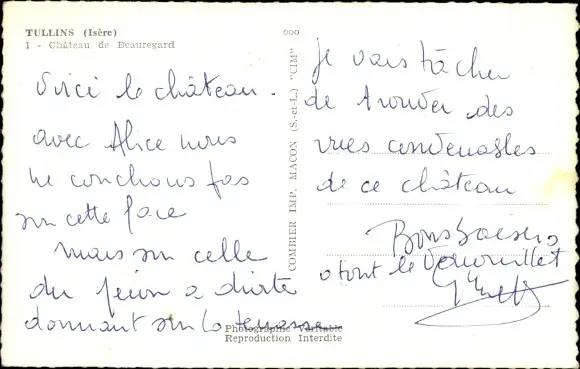 TULLINS (Isère)
1 - Château de Beauregard
Voici le château.
avec Alice nous
ne couchons pas
sur cette face
mais sur celle
du à droite
donnant sur la terrasse
Photographie Véritable
Reproduction Interdite
COMBIER IMP. MACON (S.-et-L.) "CIM"
Je vais tâcher
de trouver des
vues convenables
de ce château
Bons baisers
a tout le